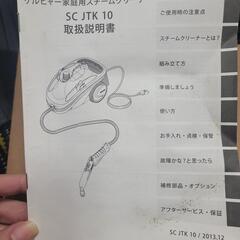 ケルヒャー家庭用スチームクリーナー
SC JTK 10
取扱説明書
ご使用時の注意点
スチームクリーナーとは？
組み立て方
準備しましょう
使い方
お手入れ・点検・保管
故障かな？と思ったら
補修部品・オプション
アフターサービス・保証
SC JTK 10 / 2013.12